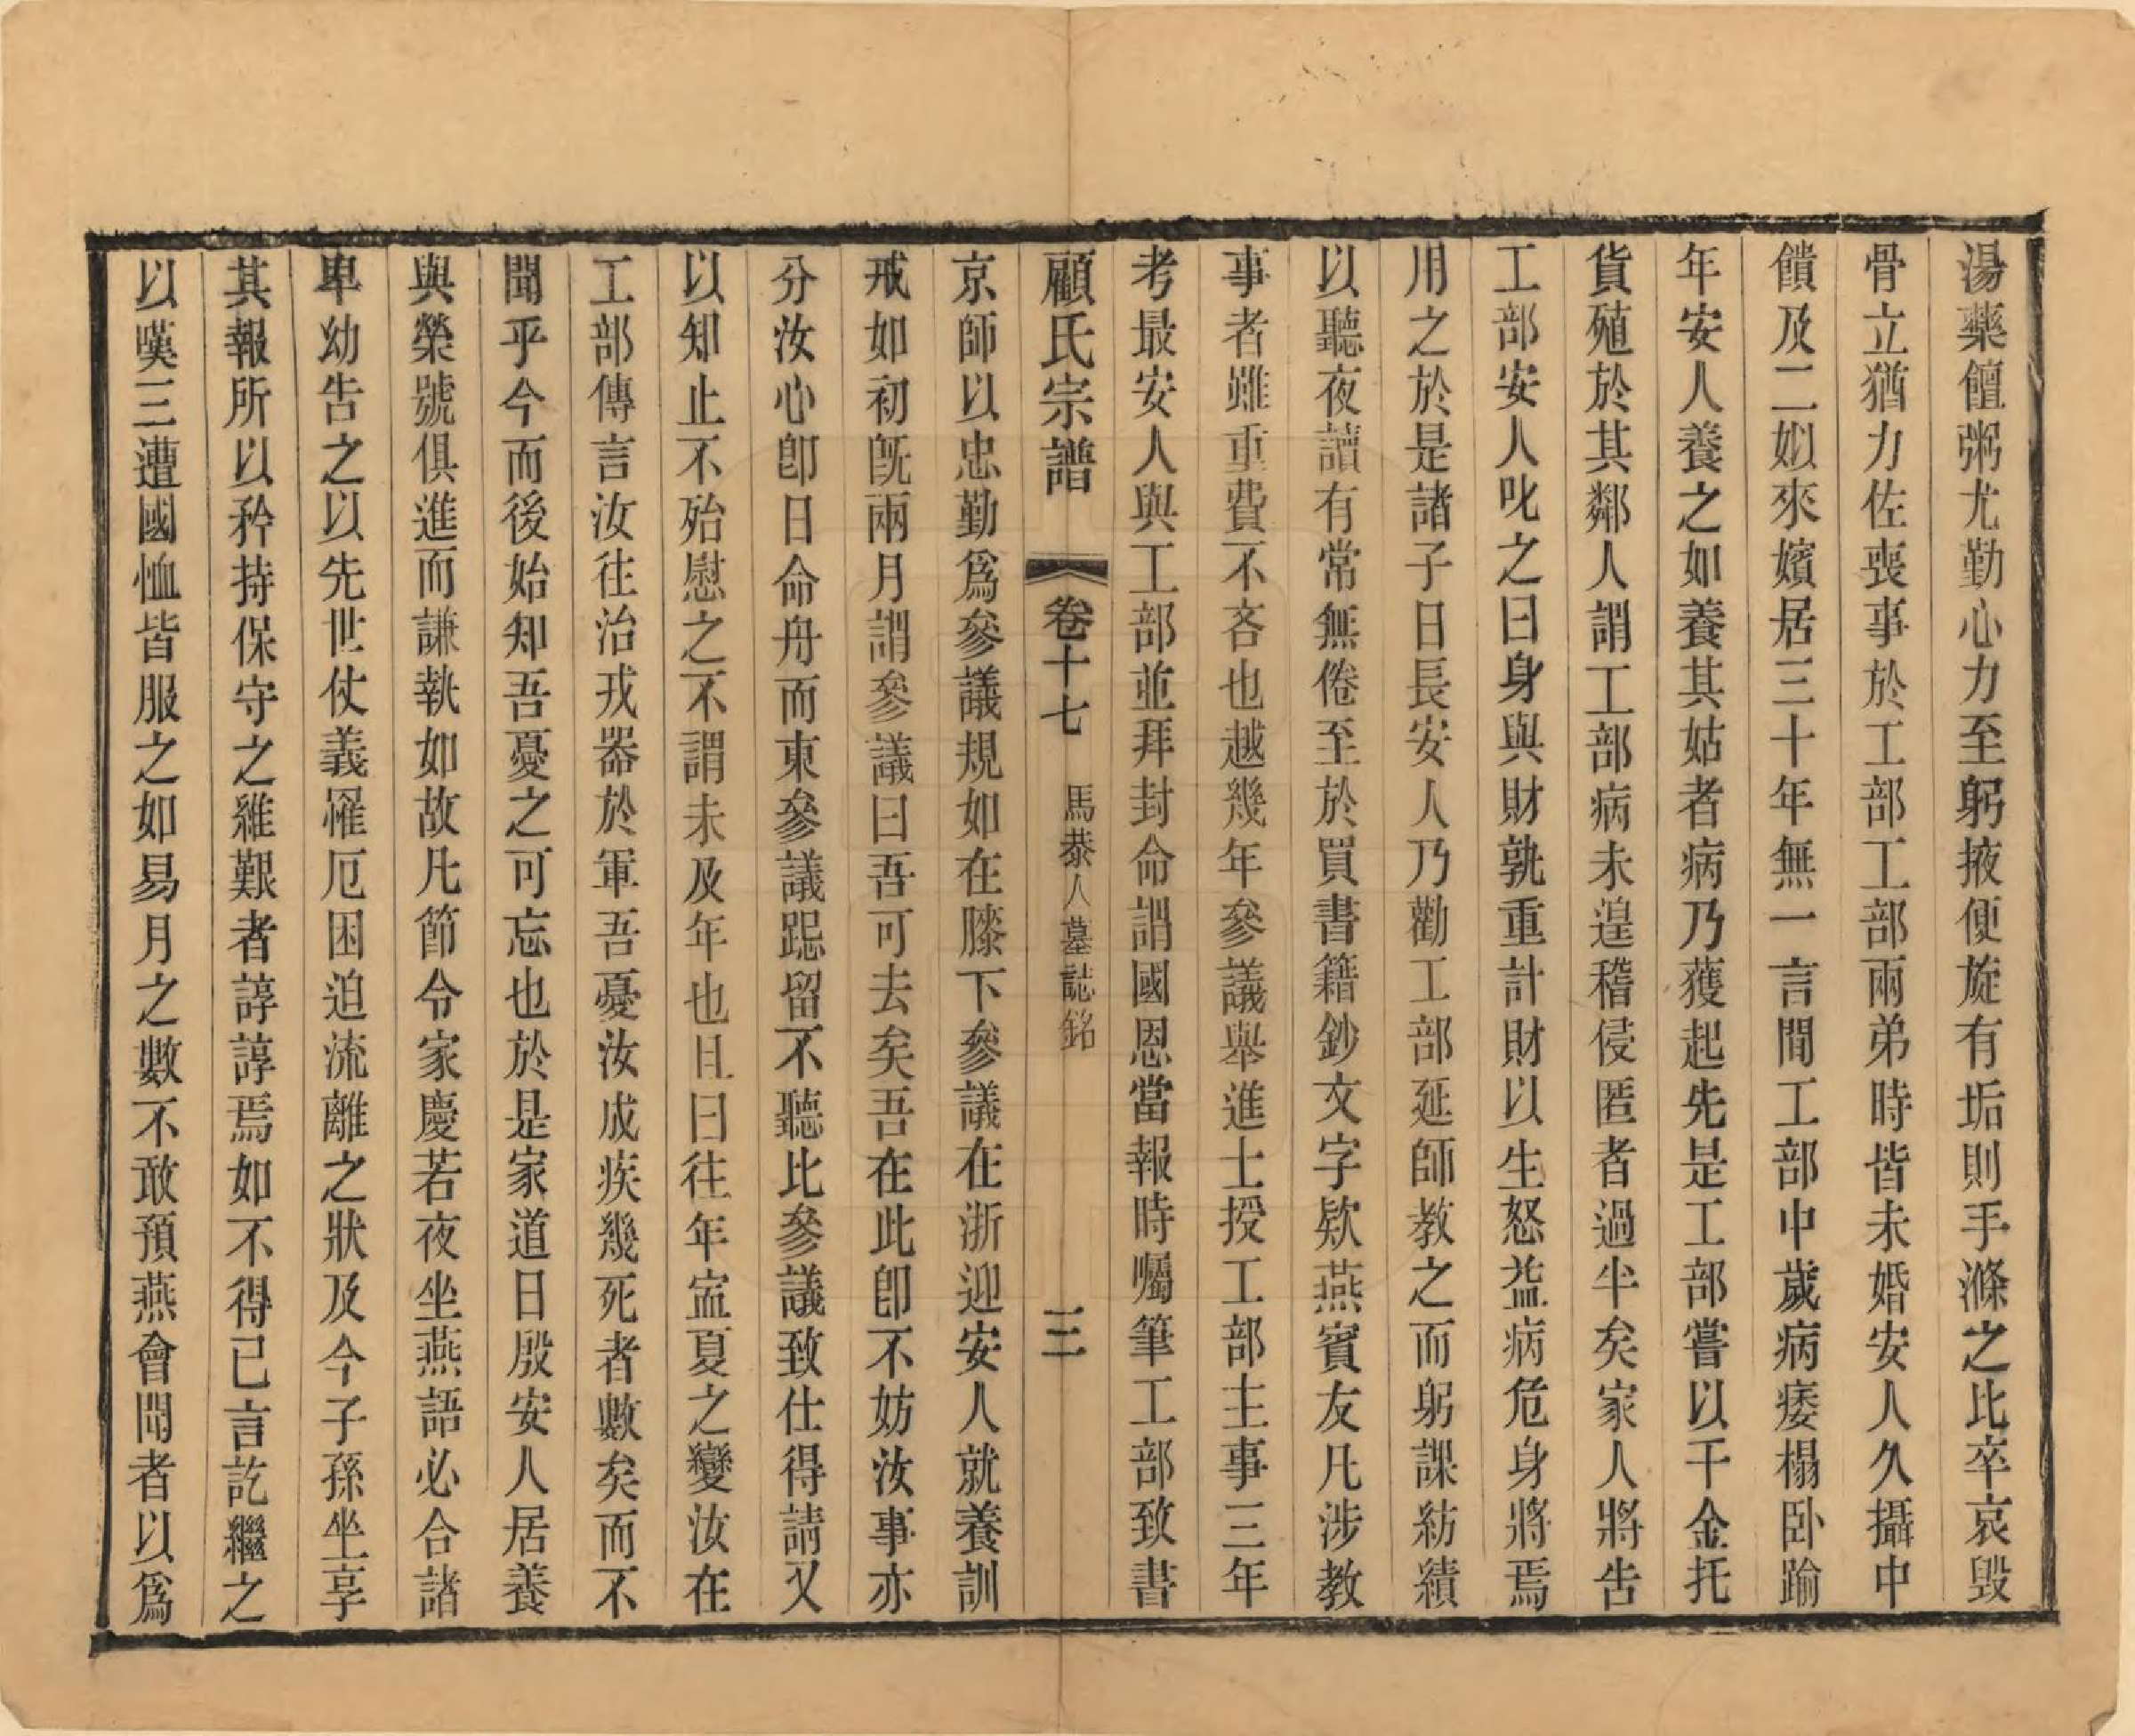 湯藥饘粥尤勤心力至躬掖便旋有垢則手滌之比卒哀毁
骨立猶力佐喪事於工部工部兩弟時皆未婚安人久攝中
饋及二姒來嬪居三十年無一言閒工部中歲病痿榻卧踰
年安人養之如養其姑者病乃獲起先是工部嘗以千金托
貨殖於其鄰人謂工部病未遑稽侵匿者過半矣家人將告
工部安人叱之曰身與財孰重計財以生怒益病危身將焉
用之於是諸子日長安人乃勸工部延師教之而躬課紡績
以聽夜讀有常無倦至於買書籍鈔文字欵燕賓友凡涉教
事者雖重費不吝也越幾年參議舉進士授工部主事三年
考最安人與工部並拜封命謂國恩當報時囑筆工部致書
顧氏宗譜 卷十七 馬恭人墓誌銘 三
京師以忠勤爲參議規如在膝下參議在浙迎安人就養訓
戒如初旣兩月謂參議曰吾可去矣吾在此卽不妨汝事亦
分汝心卽日命舟而東參議跽留不聽比參議致仕得請又
以知止不殆慰之不謂未及年也且曰往年寍夏之變汝在
工部傳言汝往治戎器於軍吾憂汝成疾幾死者數矣而不
聞乎今而後始知吾憂之可忘也於是家道日殷安人居養
與榮號俱進而謙執如故凡節令家慶若夜坐燕語必合諸
卑幼告之以先世仗義罹厄困迫流離之狀及今子孫坐享
其報所以矜持保守之維艱者諄諄焉如不得已言訖繼之
以嘆三遭國恤皆服之如易月之數不敢預燕會聞者以爲